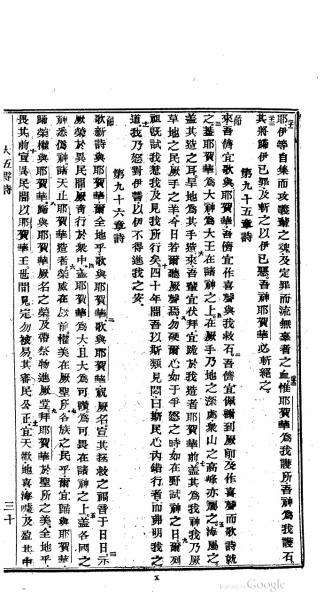 耶伊等自集而攻義輩之魂及定罪而流無辜者之血惟耶賀華為我護所吾神為我護石
其將歸伊已罪及斬之以伊已惡吾神耶賀華必斬絕之
第九十五章詩
來吾儕宜歌與耶賀華吾儕宜作喜聲與我救石吾儕宜偕謝到厥前及作喜聲而歌詩就
之蓋耶賀華為大神為大王在諸神之上在厥手乃地之深處衆山之高峰亦屬之海屬之
蓋其造之耳旱地為其手造來吾儕宜伏拜宜跪於我造者耶賀華前蓋其為我神我乃厥
草地之民厥手之羊今日若爾聽厥聲焉勿硬爾心如于爭怒之時如在野試神之日爾列
祖既試我惹我及見我所行矣四十年間吾以斯類見悶曰斯民心內錯行者而弗明我之
道我乃怒對伊誓以伊不得進我之安
第九十六章詩
歌新詩與耶賀華爾全地乎歌與耶賀華歌與耶賀華祝厥名宣其拯救之福音于日日示
厥榮於異民間厥奇行於衆中蓋耶賀華為大且大為可讚為可畏在諸神之上蓋各國之
神悉偽神諸天止耶賀華造者榮威在以前權美在厥聖所各族之民乎爾宜歸與耶賀華
歸榮權與耶賀華歸與耶賀華厥名之榮及帶祭物進厥堂拜耶賀華於聖所之美全地乎
畏其前宣異民間以耶賀華王世間見定勿被易其審民公正宜天歡地喜海嘯及盈其中
三十
Google